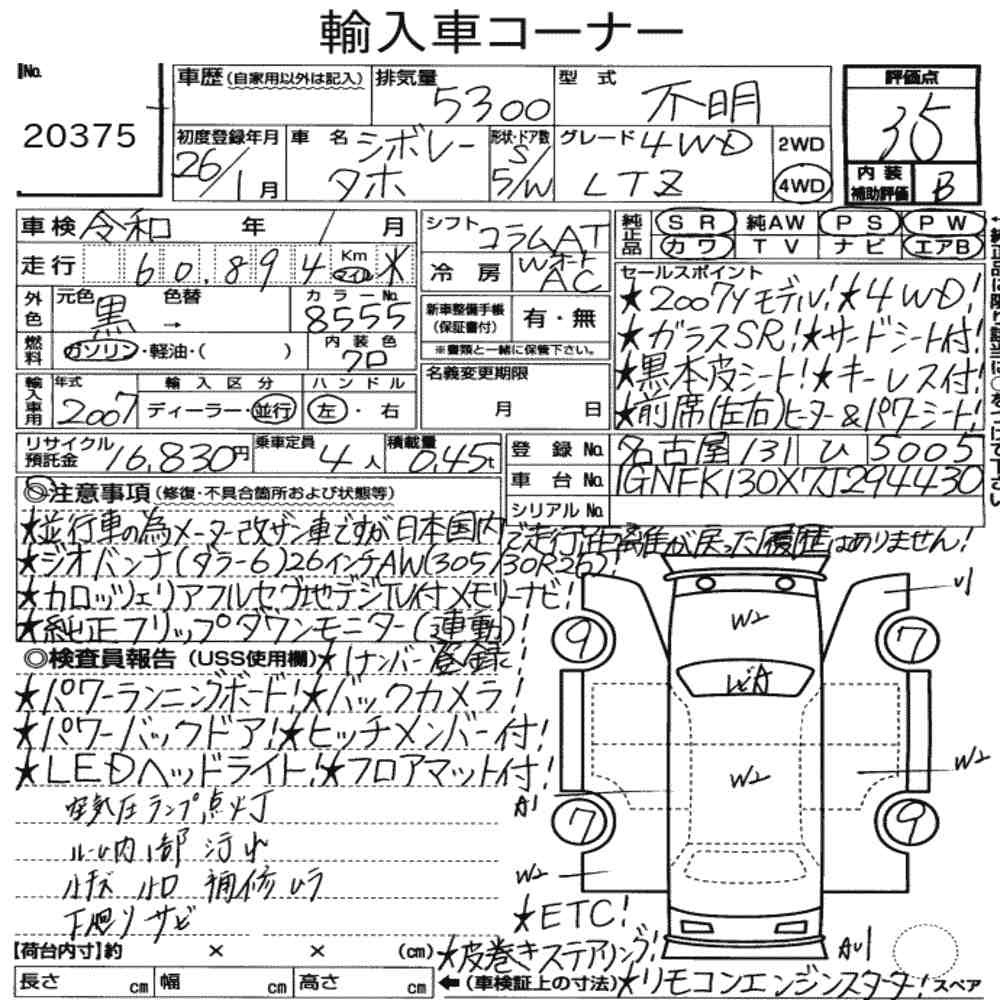 輸入車コーナー
No. 20375
車歴 (自家用以外は記入)
排気量 5300
型式 不明
評価点 35
初度登録年月 26/1月
車名 シボレー タホ
形状・ドア数 S/5/W
グレード 4WD LTZ
2WD 4WD
内装補助評価 B
車検 令和 年 / 月
シフト コラムAT
純正品 SR 純AW PS PW
カワ TV ナビ エアB
走行 60,894 Km マイル ※
冷房 Wオート AC
セールスポイント
★2007yモデル!★4WD!
★ガラスSR!★サードシート付!
★黒本皮シート!★キーレス付!
★前席(左右)ヒーター&パワーシート!
外色 元色 黒 → 色替 カラーNo. 8555
新車整備手帳(保証書付) 有・無
※書類と一緒に保管下さい。
燃料 ガソリン・軽油・( )
内装色 クロ
輸入車用 年式 2007
輸入区分 ディーラー・並行
ハンドル 左・右
名義変更期限 月 日
リサイクル預託金 16,830円
乗車定員 4人
積載量 0.45t
登録No. 名古屋 131 ひ 5005
車台No. 1GNFK130X7J294430
シリアルNo.
◎注意事項 (修復・不具合箇所および状態等)
★並行車の為メーター改ザン車ですが日本国内で走行距離が戻った履歴はありません!
★ジオバンナ(ダラー6)26インチAW(305/30R26)!
★カロッツェリアフルセグ地デジTV付メモリーナビ!
★純正フリップダウンモニター(連動)!
◎検査員報告 (USS使用欄) ★1ナンバー登録!
★パワーランニングボード!★バックカメラ!
★パワーバックドア!★ヒッチメンバー付!
★LEDヘッドライト!★フロアマット付!
空気圧ランプ点灯
ルーム内1部汚れ
補修ムラ
下廻りサビ
U1
W2
9 7
W2
W2
A1
7 9
W2
★ETC!
★皮巻きステアリング!
AU1
【荷台内寸】約 × × (cm)
長さ cm 幅 cm 高さ cm
←(車検証上の寸法) ★リモコンエンジンスターター! スペア